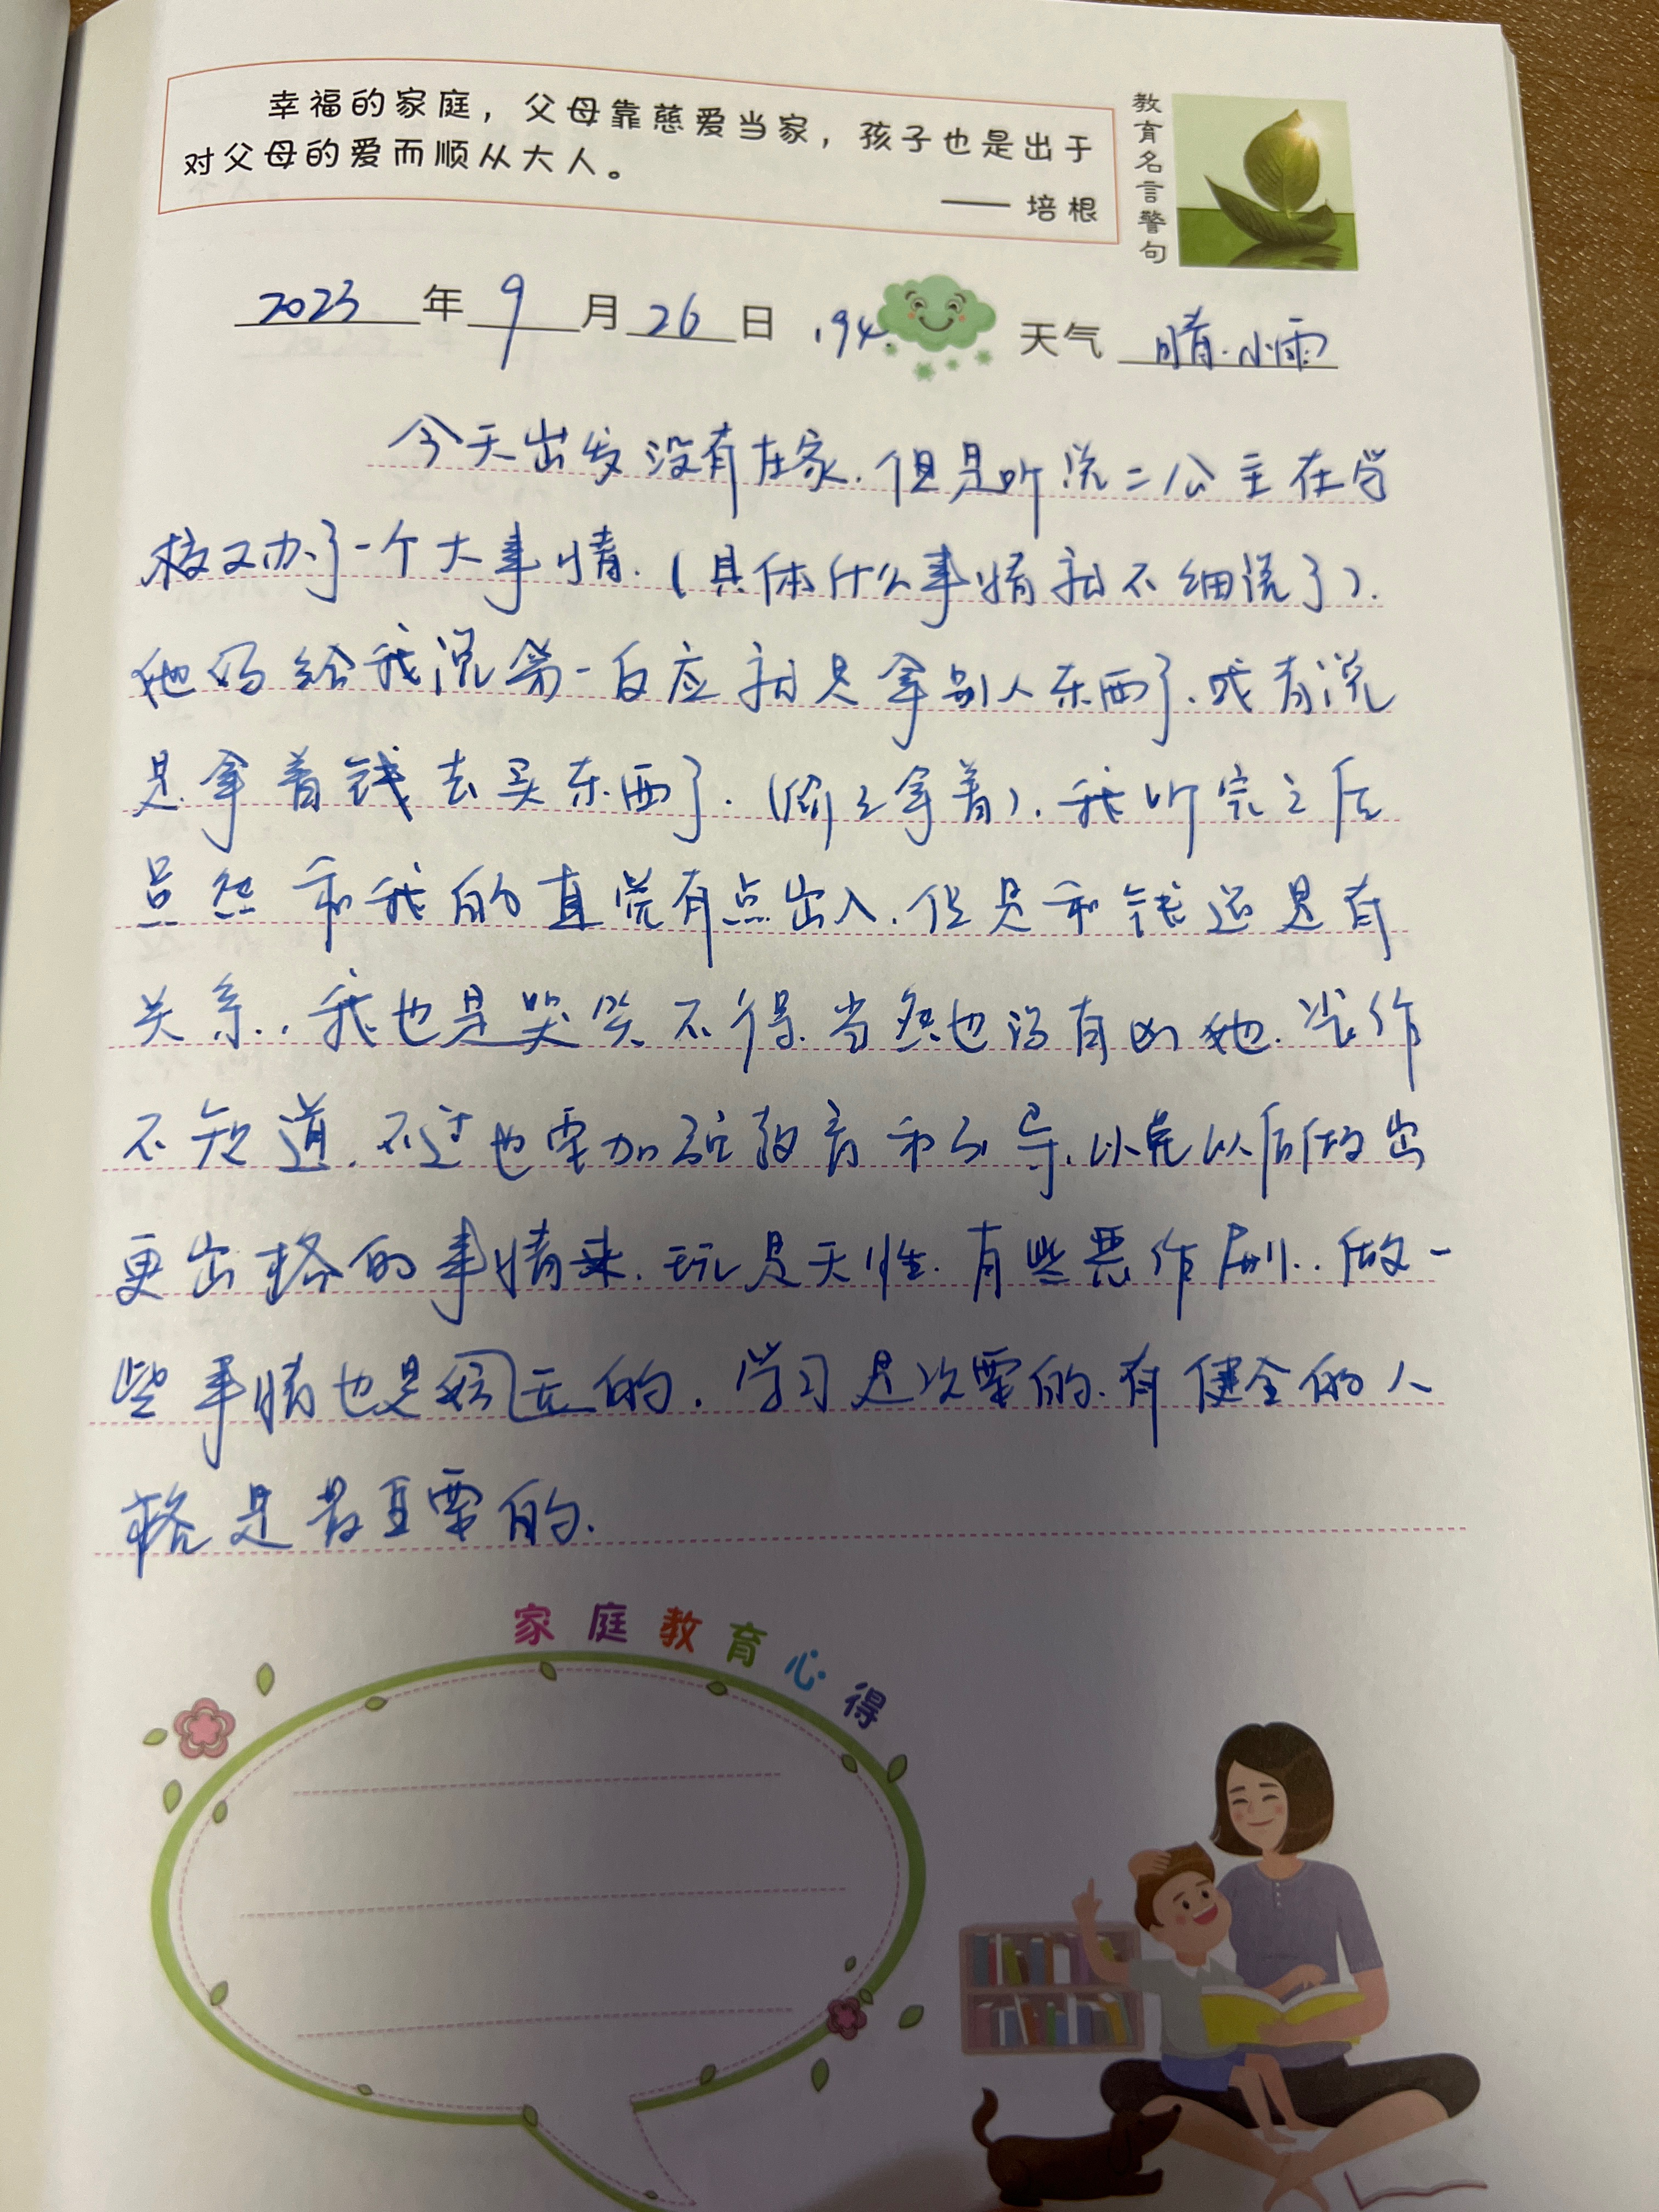 幸福的家庭，父母靠慈爱当家，孩子也是出于
对父母的爱而顺从大人。
—— 培根
教育名言警句
2023年9月26日 194. 天气 晴.小雨
今天出发没有在家.但是听说二公主在学
校又办了一个大事情.(具体什么事情就不细说了).
她妈给我说第一反应就是拿别人东西了.或者说
是拿着钱去买东西了.(偷偷拿着).我听完之后
虽然和我的直觉有点出入.但是和钱还是有
关系..我也是哭笑不得.当然也没有凶她.装作
不知道.不过也要加强教育和引导.以免以后做出
更出格的事情来.玩是天性.有些恶作剧..做一
些事情也是的.学习是次要的.有健全的人
格是最重要的.
家庭教育心得